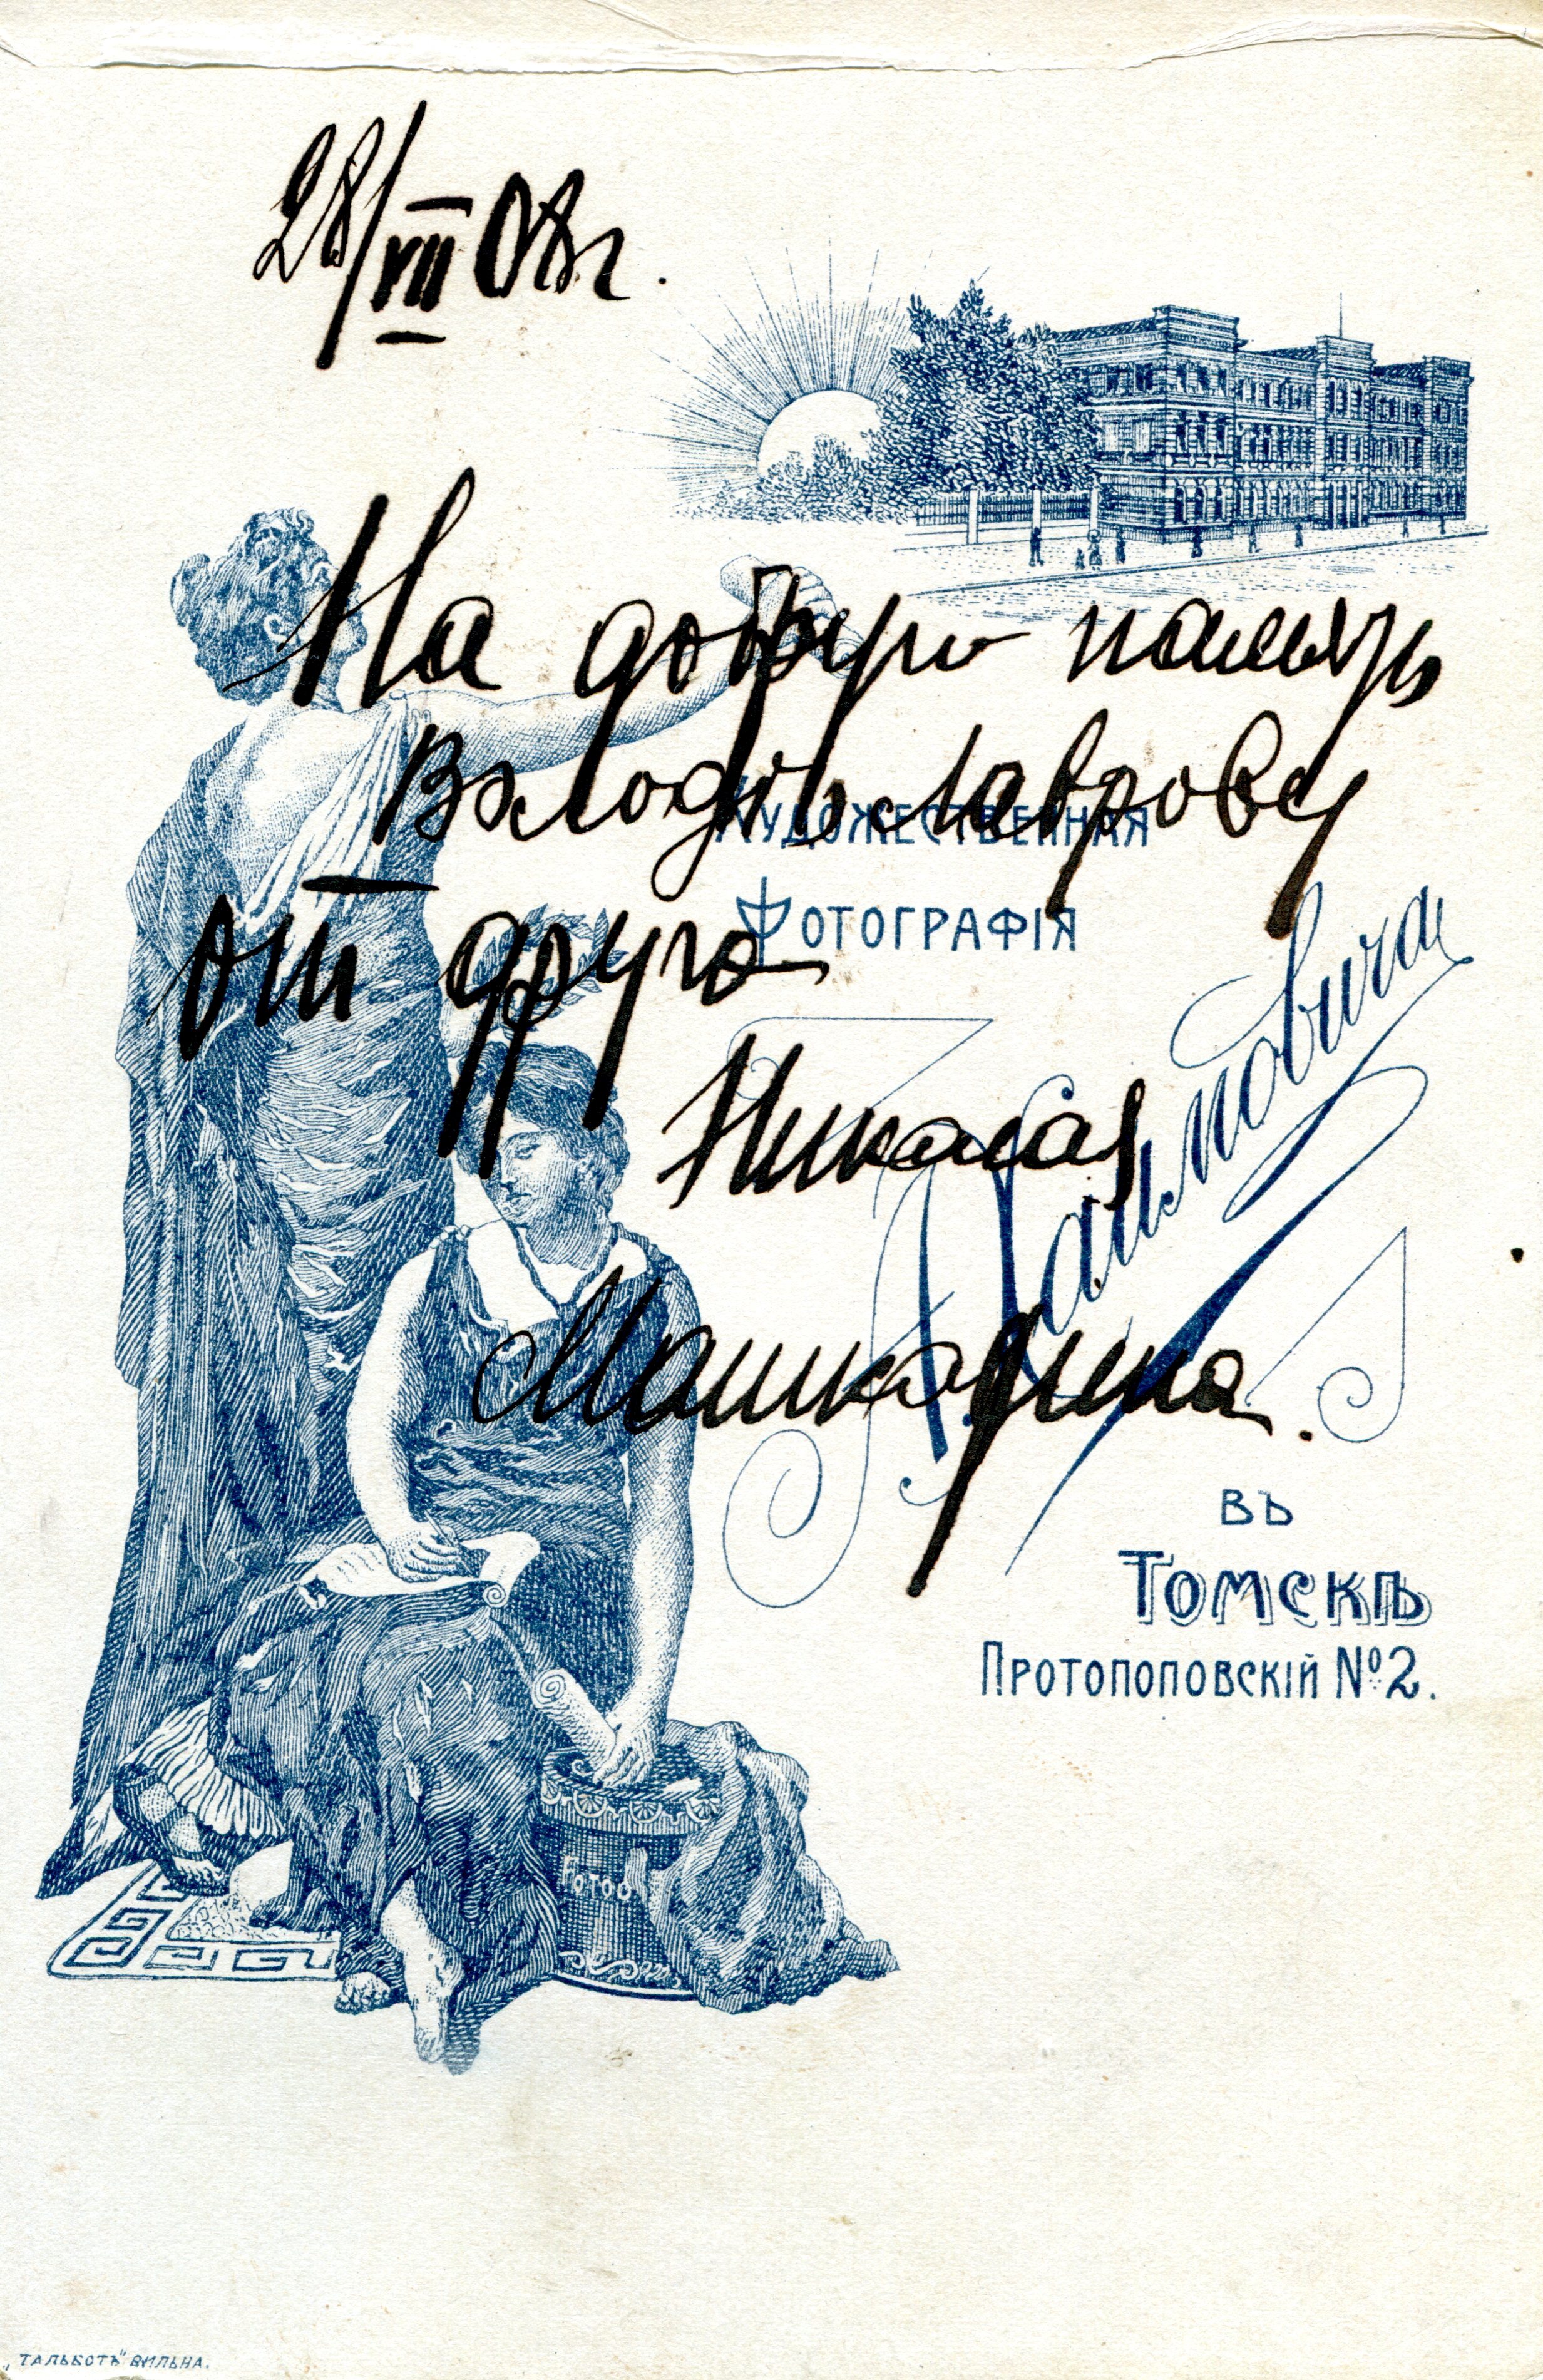 28/VII 08 г.
На добрую память
Володѣ Лаврову
от друга
Николая
Машкарина.
Художественная
Фотографія
Хаимовича
въ
Томскѣ
Протопоповскій №2.
Фотоо
„Тальботъ" Вильна.